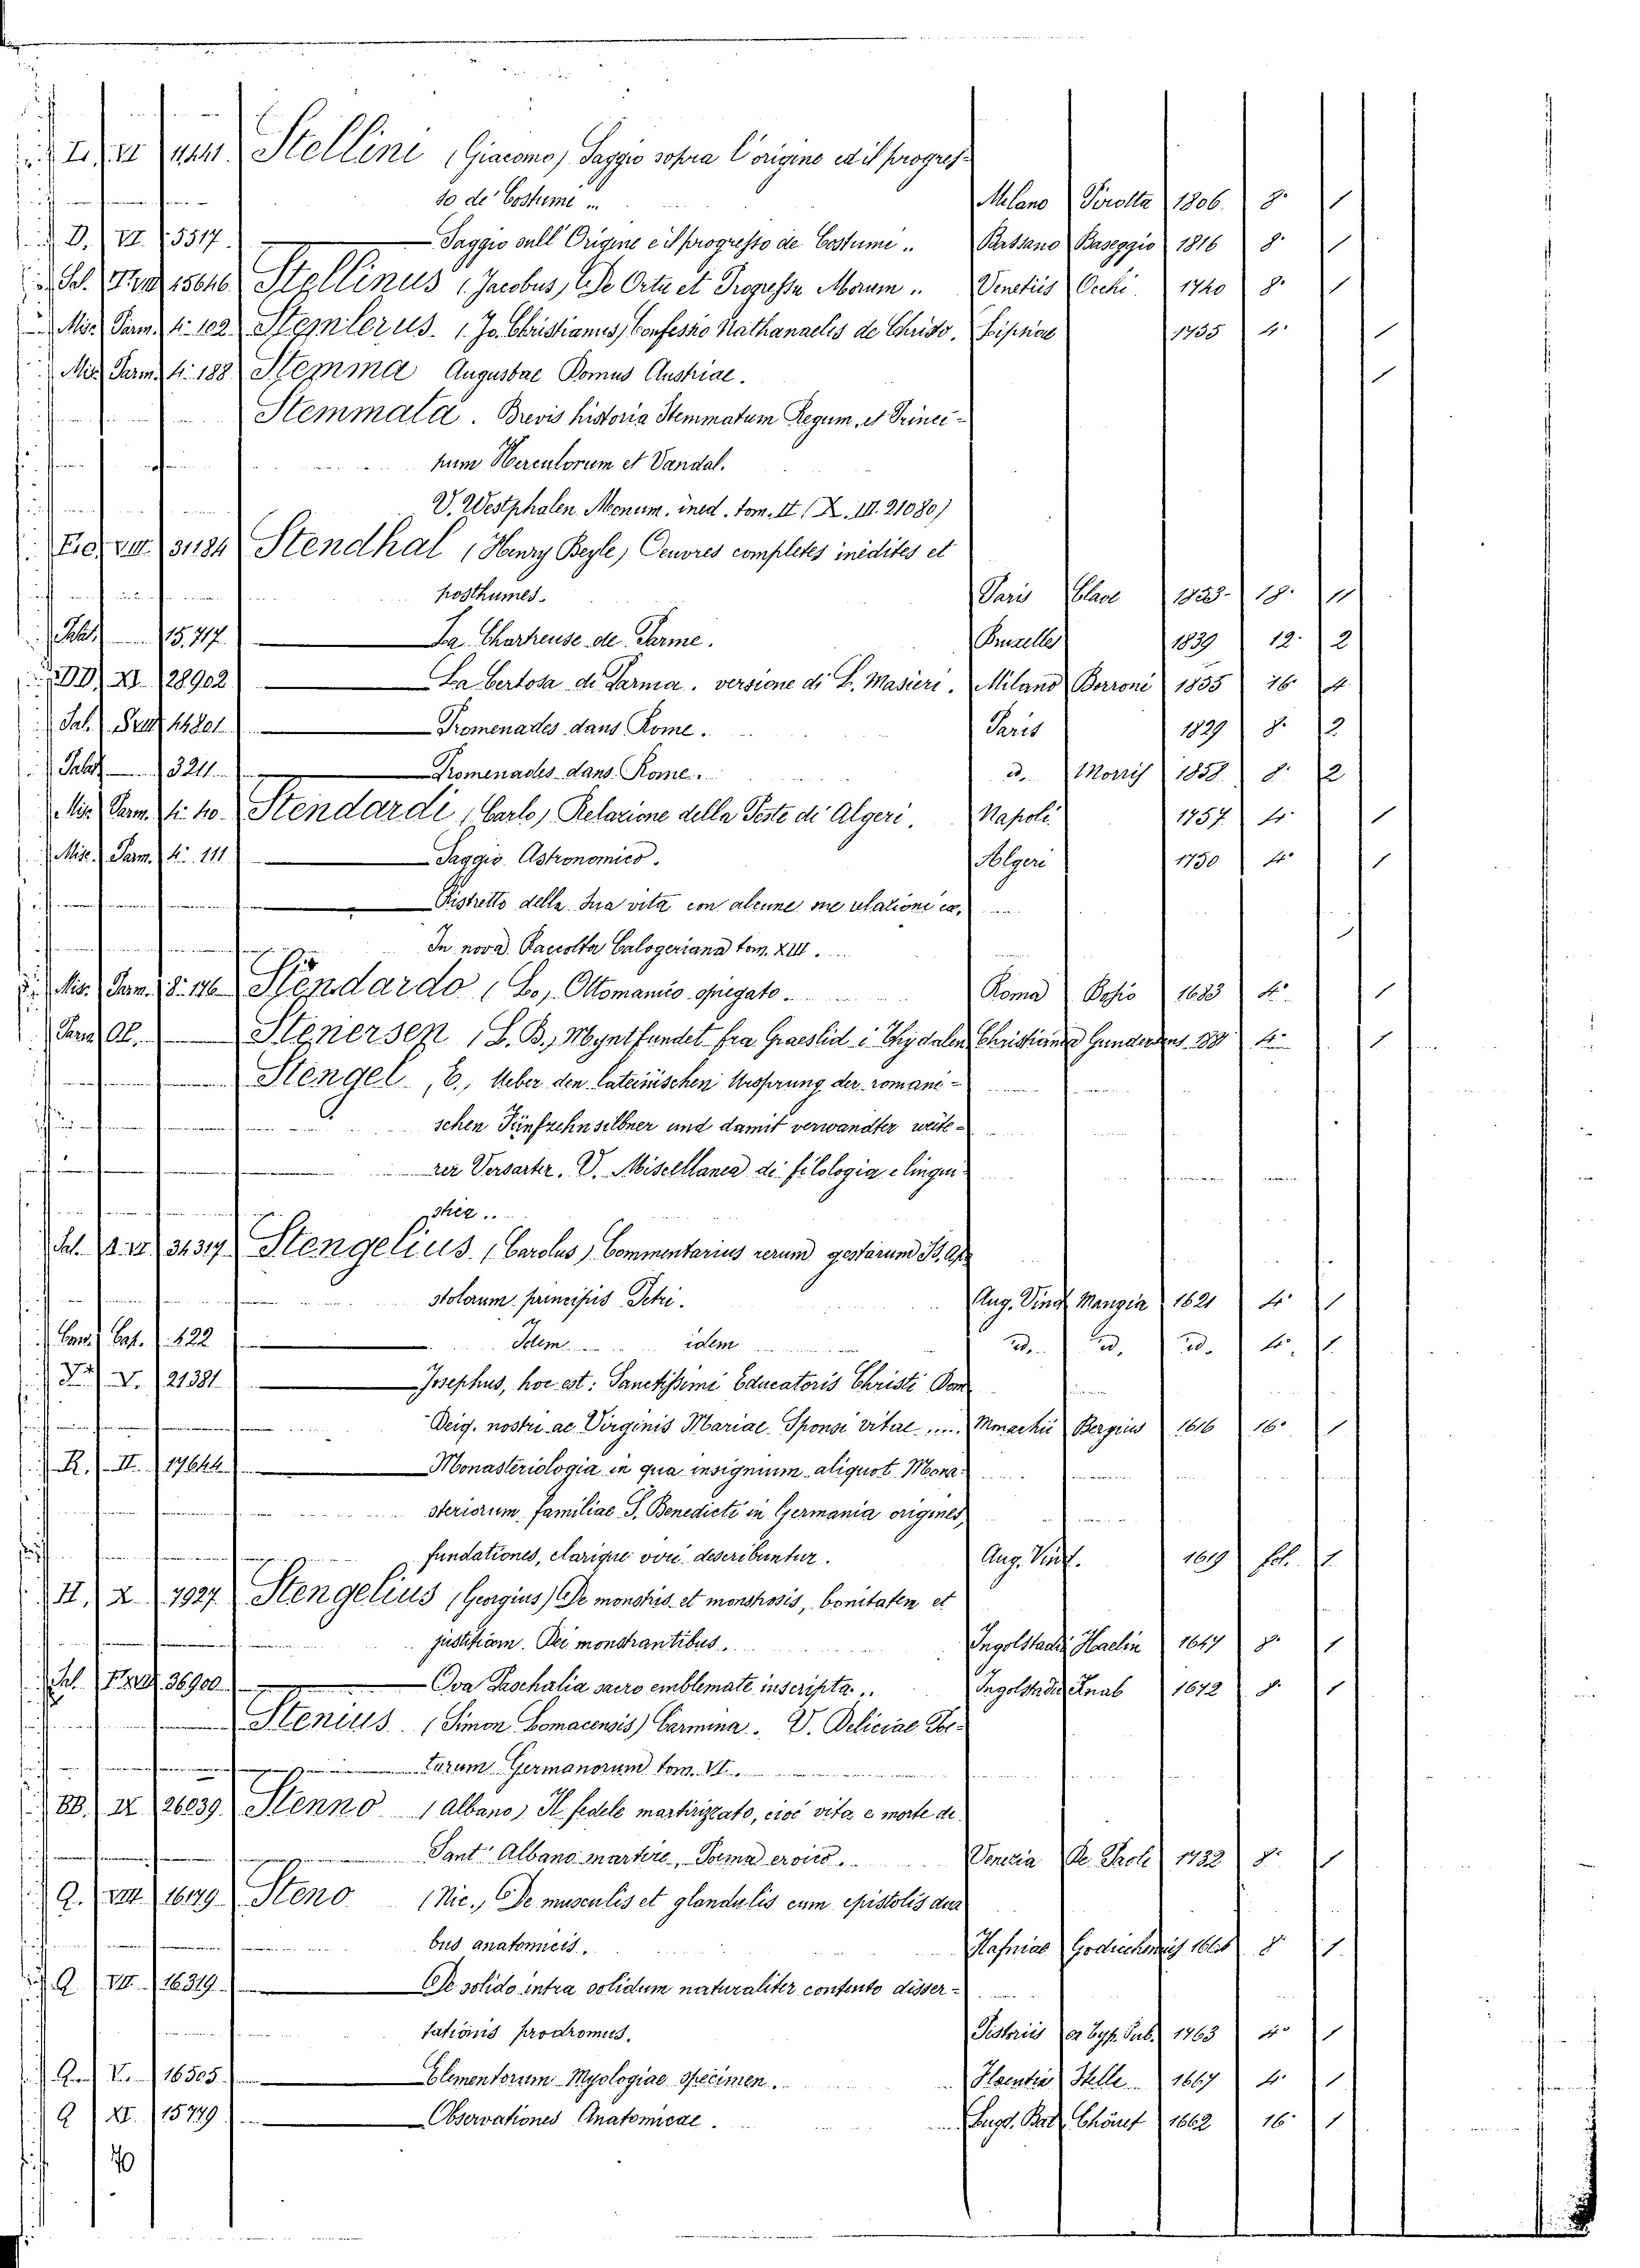 Stellini (Giacomo) Saggio sopra l'origine ed il progres-
so de' Costumi .. Milano Pirotta 1806. 8° 1
D. VI. 5517. Saggio sull' Origine e il progresso de Costumi .. Bassano Baseggio 1816 8° 1
Stellinus (Jacobus) De Ortu et Progressu Morum .. Venetiis Occhi 1740 8° 1
Mis. Parm. 4° 102 Stemlerus (Jo. Christianus) Confessio Nathanaelis de Christo. Lipsiae 1735 4° 1
Mis. Parm. 4° 188 Stemma Augustae Domus Austriae. 1
Stemmata. Brevis historia Stemmatum Regum, et Princi-
pum Herculorum et Vandal.
V. Westphalen Monum. ined. tom. II (X. III. 21080)
31184 Stendhal (Henry Beyle) Oeuvres completes inédites et
posthumes. Paris 18. 11
15,717 La Chartreuse de Parme. Bruxelles 1839 12. 2
DD. XI. 28902 La Certosa di Parma. versione di L. Masieri. Milano Borroni 1855 16° 4
Sal. 14801 Promenades dans Rome. Paris 1829 8° 2
3211 Promenades dans Rome. id. 1858. 8° 2
Mis. Parm. 4° 40 Stendardi (Carlo) Relazione della Peste di Algeri. Napoli 1757 4° 1
Misc. Parm. 4° 111 Saggio Astronomico. Algeri 1750 4° 1
Ristretto della sua vita con alcune sue relationi
In nova Raccolta Calogeriana tom. XIII.
Mis. Parm. 8° 176 Stendardo (Lo) Ottomanico spiegato. Roma Bosio 1683 4° 1
Stenersen (L. B.) Myntfundet fra Graeslid i Thydalen Christiania 4° 1
Stengel, E., Ueber den lateinischen Ursprung der romani-
schen Fünfzehnsilbner und damit verwandter weite-
rer Versarter. V. Miscellanea di filologia e lingui-
stica..
34317 Stengelius (Carolus) Commentarius rerum gestarum B. Ap
stolorum principis Petri. Aug. Vind. Mangin 1621 4° 1
422 Idem idem id. id. id. 4° 1
V. 21381 Josephus, hoc est: Sanctissimi Educatoris Christi Dom
Deig. nostri ac Virginis Mariae Sponsi vitae ..... Monachii Bergius 1616 16° 1
R. II. 17644 Monasteriologia in qua insignium aliquot Mona-
steriorum familiae S. Benedicti in Germania origines,
fundationes, clarique viri describuntur. Aug. Vind. 1619 fol. 1
II. X 7927 Stengelius (Georgius) De monstris et monstrosis, bonitatem et
justitiam Dei monstrantibus. Ingolstadii Haelin 1647 8° 1
36900 Ova Paschalia sacro emblemate inscripta .. Ingolstadii Knab 1672 8° 1
Stenius (Simon Lomacensis) Carmina. V. Deliciae Poe-
tarum Germanorum tom. VI.
BB. IX 26039 Stenno (Albano) Il fedele martirizzato, cioè vita e morte di
Sant' Albano martire, Poema eroico. Venezia De Paoli 1732 8° 1
Q. VIII 16179 Steno (Nic.) De musculis et glandulis cum epistolis dua
bus anatomicis. Hafniae 8 1
Q VII. 16319 De solido intra solidum naturaliter contento disser-
tationis prodromus. Pistoriis ex Typ. Pub. 1763 4° 1
Q. V. 16505 Elementorum Myologiae specimen. Florentiae Stelle 1667 4° 1
Q XI. 15779 Observationes Anatomicae. Lugd. Bat. Chöuet 1662 16° 1